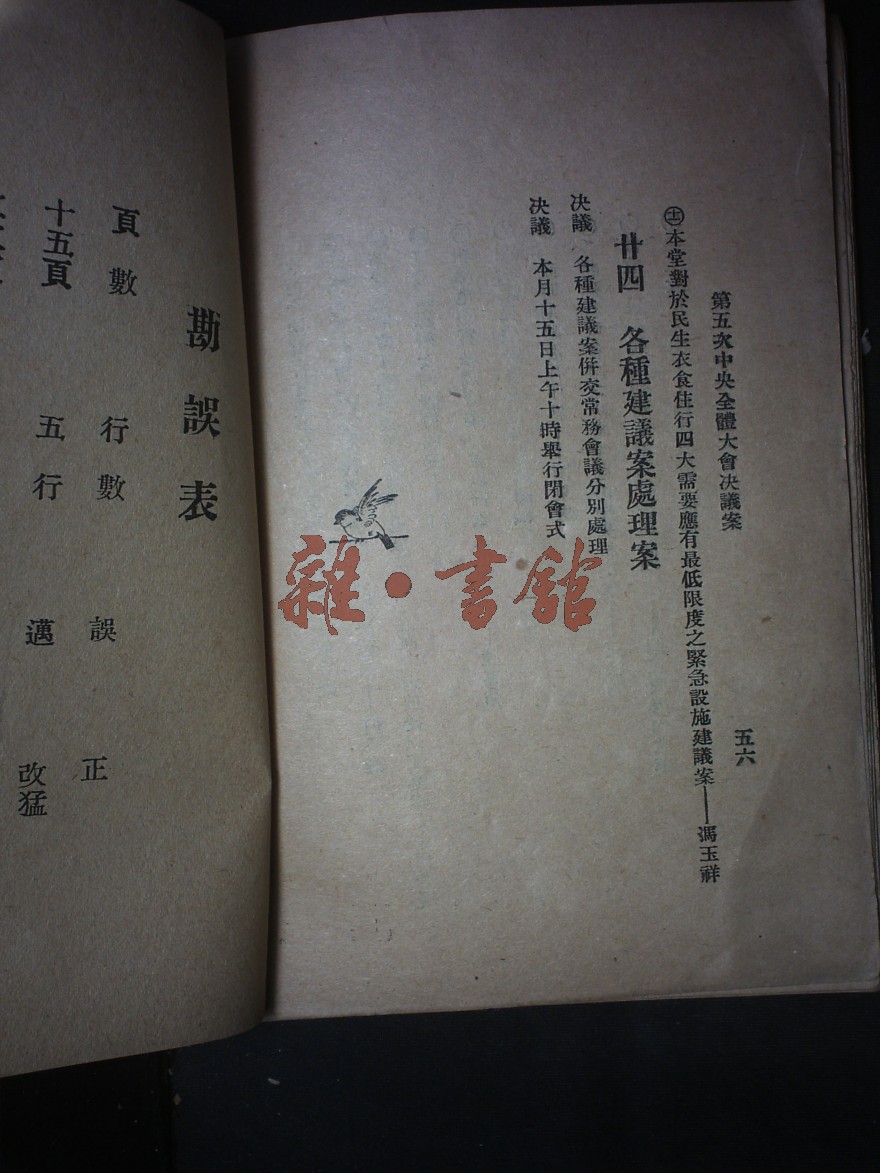 第五次中央全體大會决議案
五六
㊏本堂對於民生衣食住行四大需要應有最低限度之緊急設施建議案——馮玉祥
廿四　各種建議案處理案
决議　各種建議案併交常務會議分別處理
决議　本月十五日上午十時舉行閉會式
勘誤表
頁數　行數　誤　正
十五頁　五行　邁　改猛
雜·書舘